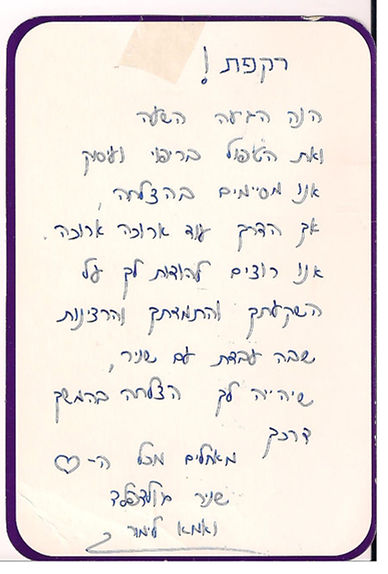 רקפת !
הנה הגיעה השעה
ואת הטיפול בריפוי ועיסוק
אנו מסיימים בהצלחה,
אך הדרך עוד ארוכה ארוכה.
אנו רוצים להודות לך על
השקעתך והתמדתך והרצינות
שבה עבדת עם שניר,
שיהיה לך הצלחה בהמשך
דרכך
מאחלים מכל ה-♡
שניר
ואמא לימור